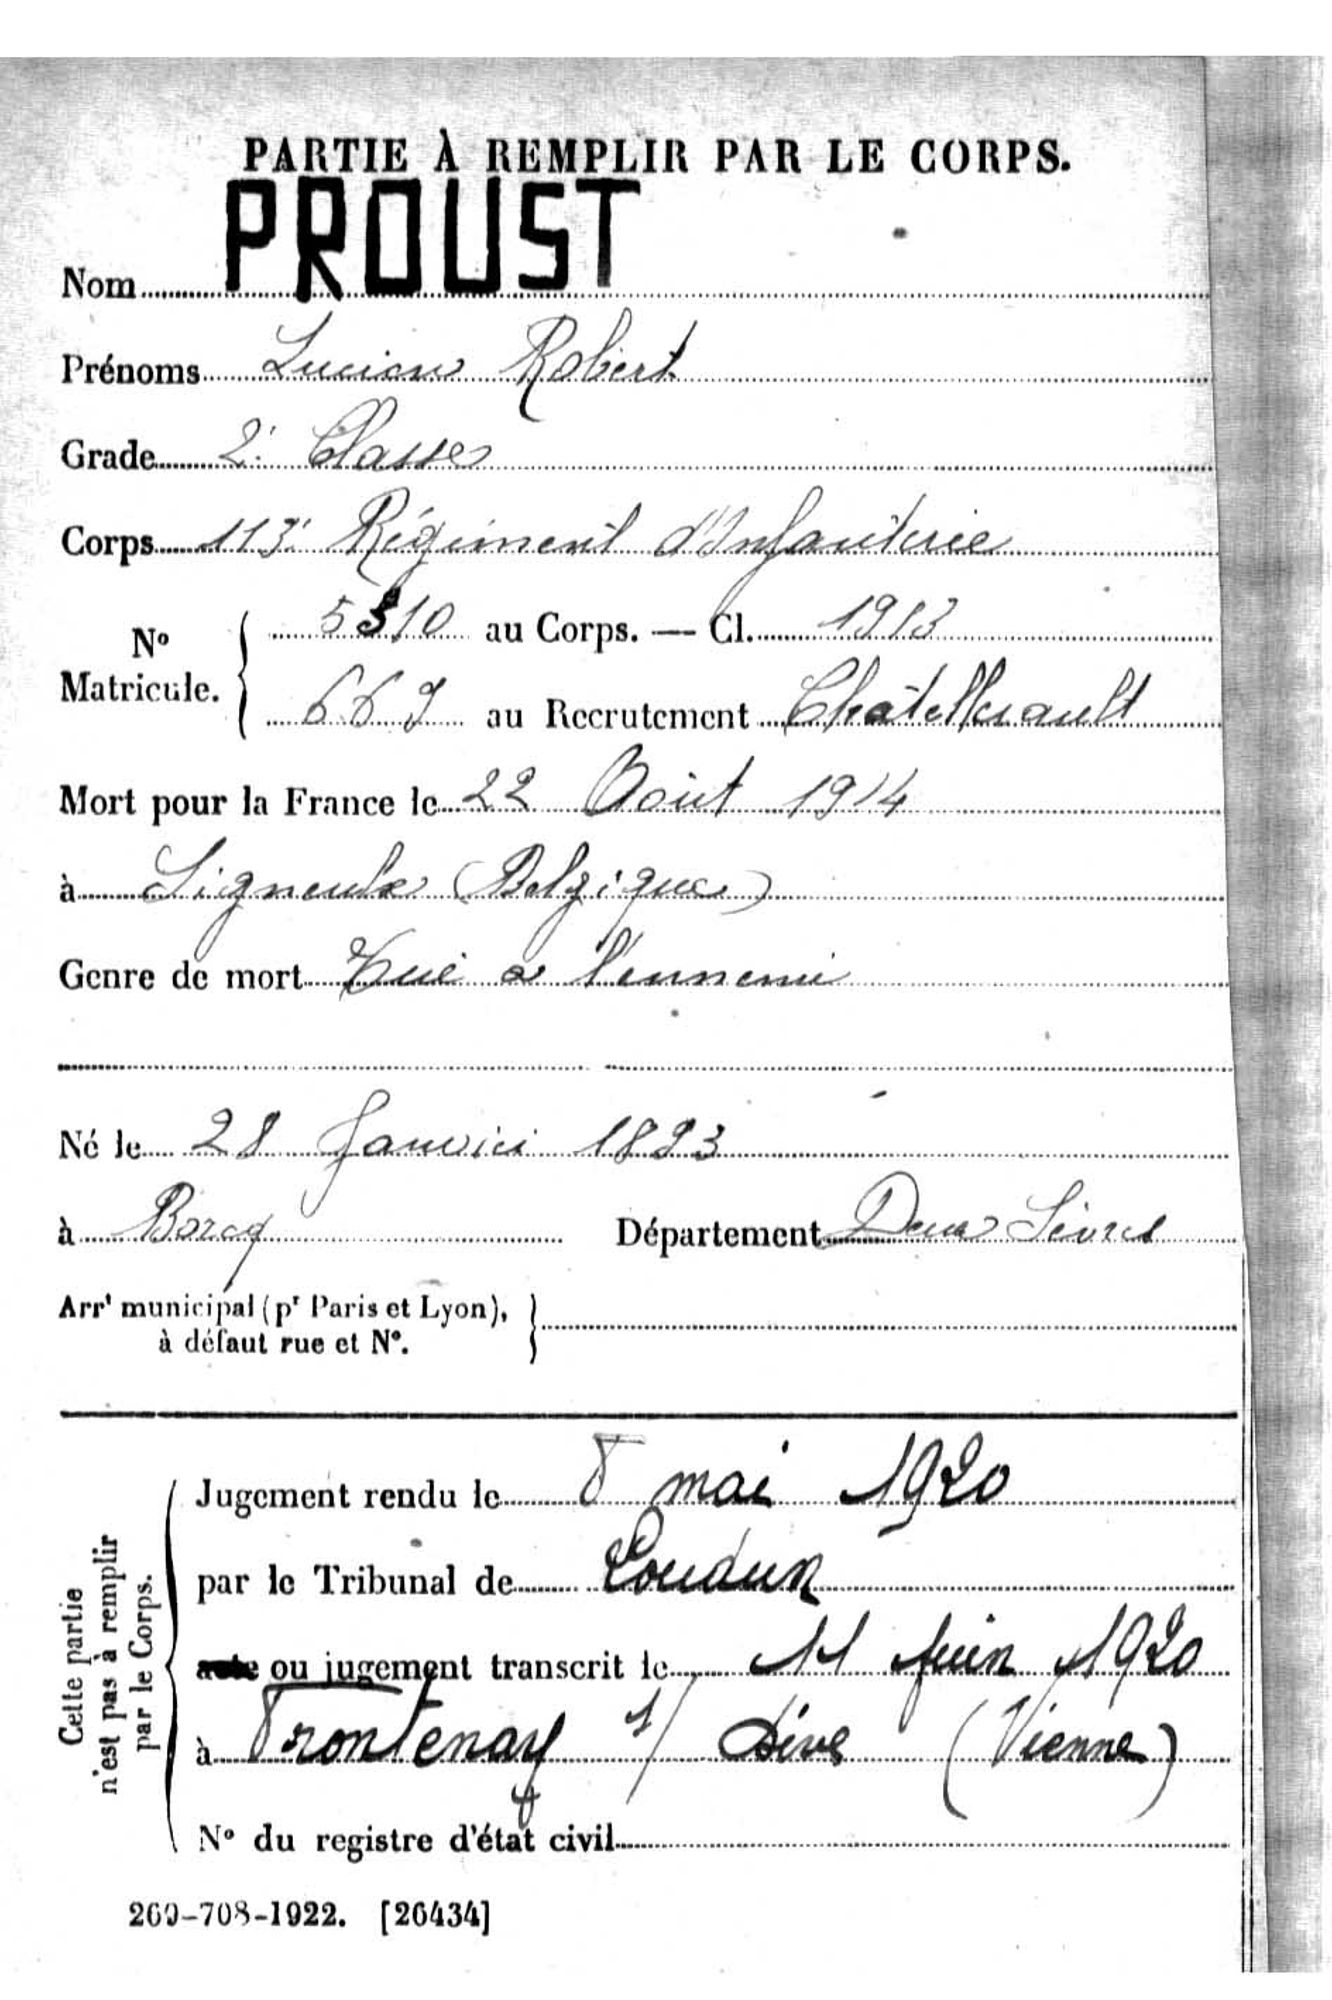 PARTIE À REMPLIR PAR LE CORPS.
Nom PROUST
Prénoms Lucien Robert
Grade 2e Classe
Corps 113e Régiment d'Infanterie
No Matricule. 5310 au Corps. — Cl. 1913
669 au Recrutement Châtellerault
Mort pour la France le 22 Août 1914
à Signeulx (Belgique)
Genre de mort Tué à l'ennemi
Né le 28 Janvier 1893
à Borcq Département Deux Sèvres
Arrt municipal (pr Paris et Lyon),
à défaut rue et No.
Cette partie
n'est pas à remplir
par le Corps.
Jugement rendu le 8 mai 1920
par le Tribunal de Loudun
acte ou jugement transcrit le 11 juin 1920
à Frontenay s/ Dive (Vienne)
No du registre d'état civil
269-708-1922. [26434]